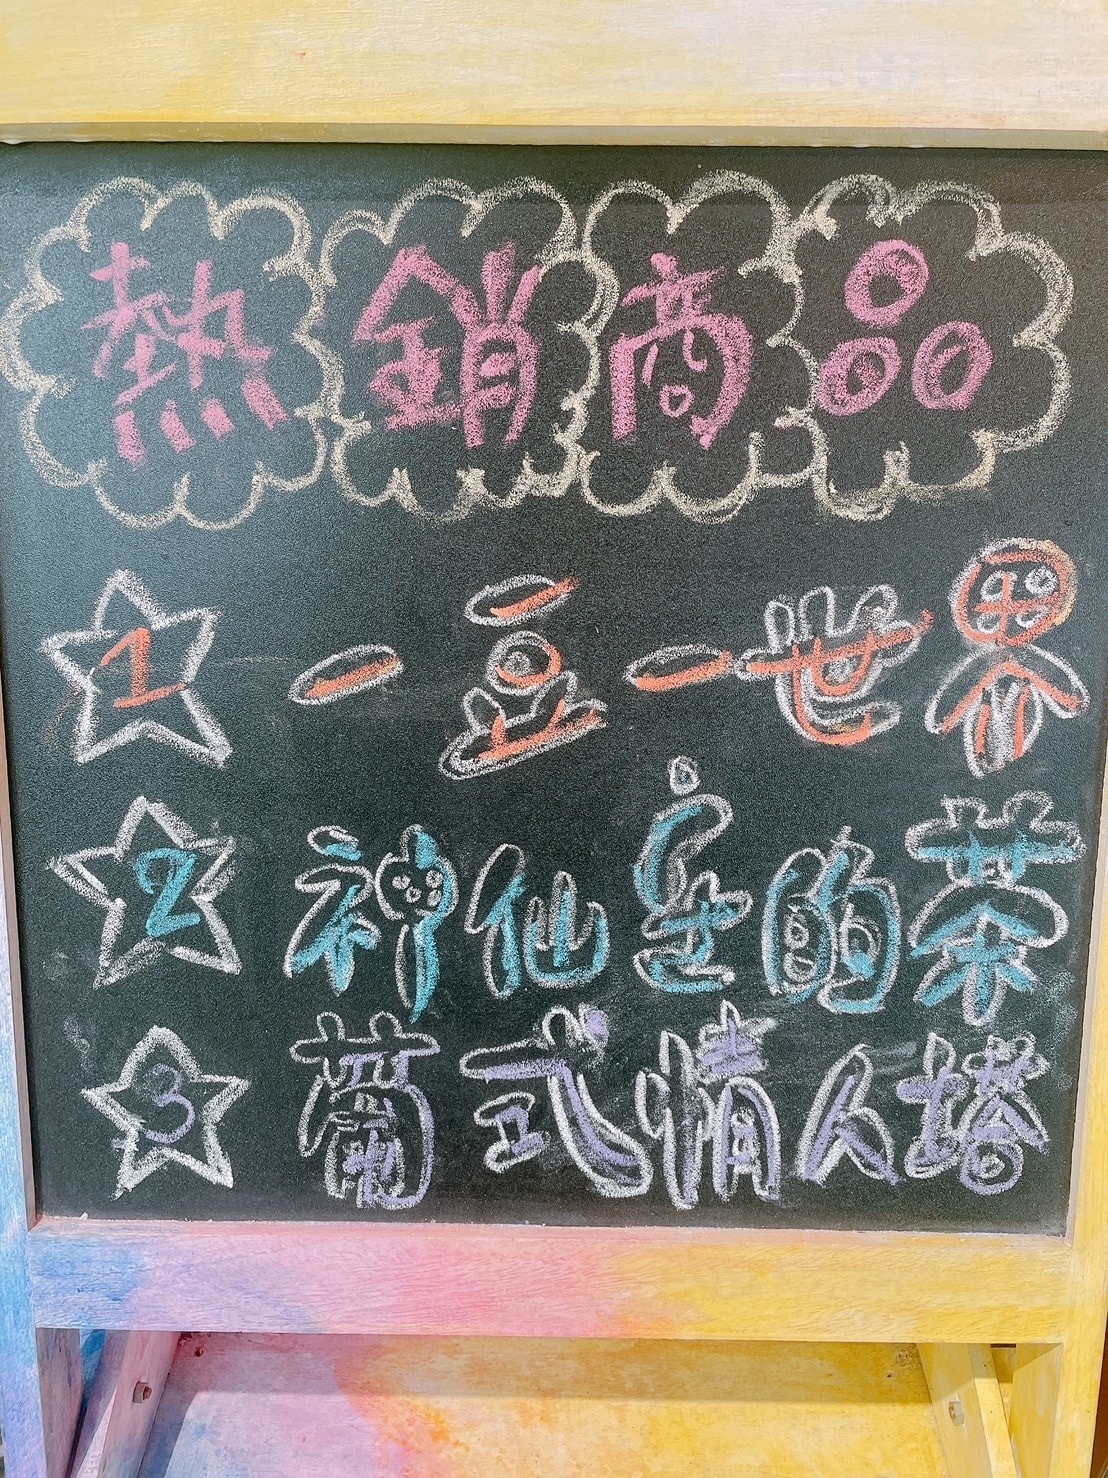 熱銷商品
1 一豆一世界
2 神仙喝的茶
3 葡式情人塔